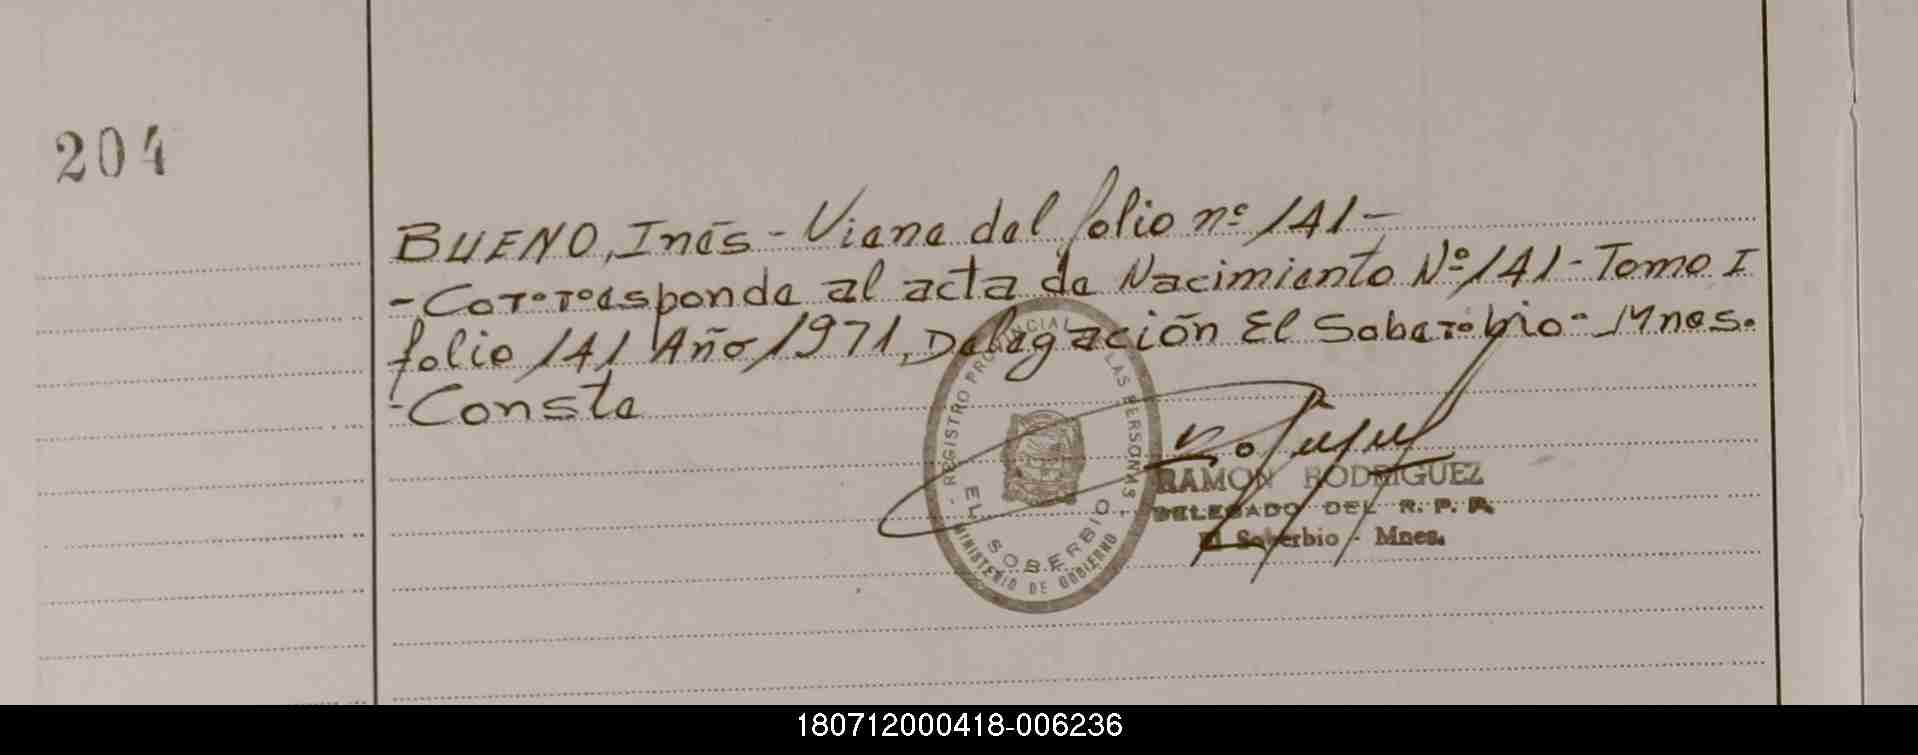 204
BUENO, Inés - Viene del folio nº 141 -
- Corresponde al acta de Nacimiento Nº 141 - Tomo I
folio 141 Año 1971, Delegación El Soberbio - Mnes.
- Conste
REGISTRO PROVINCIAL LAS PERSONAS
EL SOBERBIO
MINISTERIO DE GOBIERNO
RAMON RODRIGUEZ
DELEGADO DEL R. P. P.
El Soberbio - Mnes.
180712000418-006236